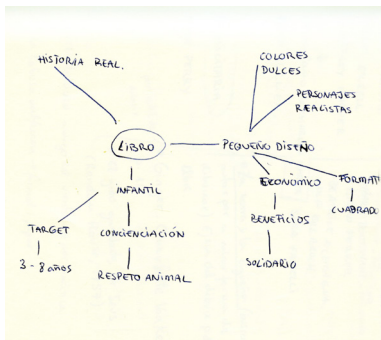 HISTORIA REAL.
COLORES
DULCES
PERSONAJES
REALISTAS
LIBRO
PEQUEÑO DISEÑO
INFANTIL
ECONÓMICO
FORMAT
CUADRADO
TARGET
CONCIENCIACIÓN
BENEFICIOS
3-8 años
RESPETO ANIMAL
SOLIDARIO